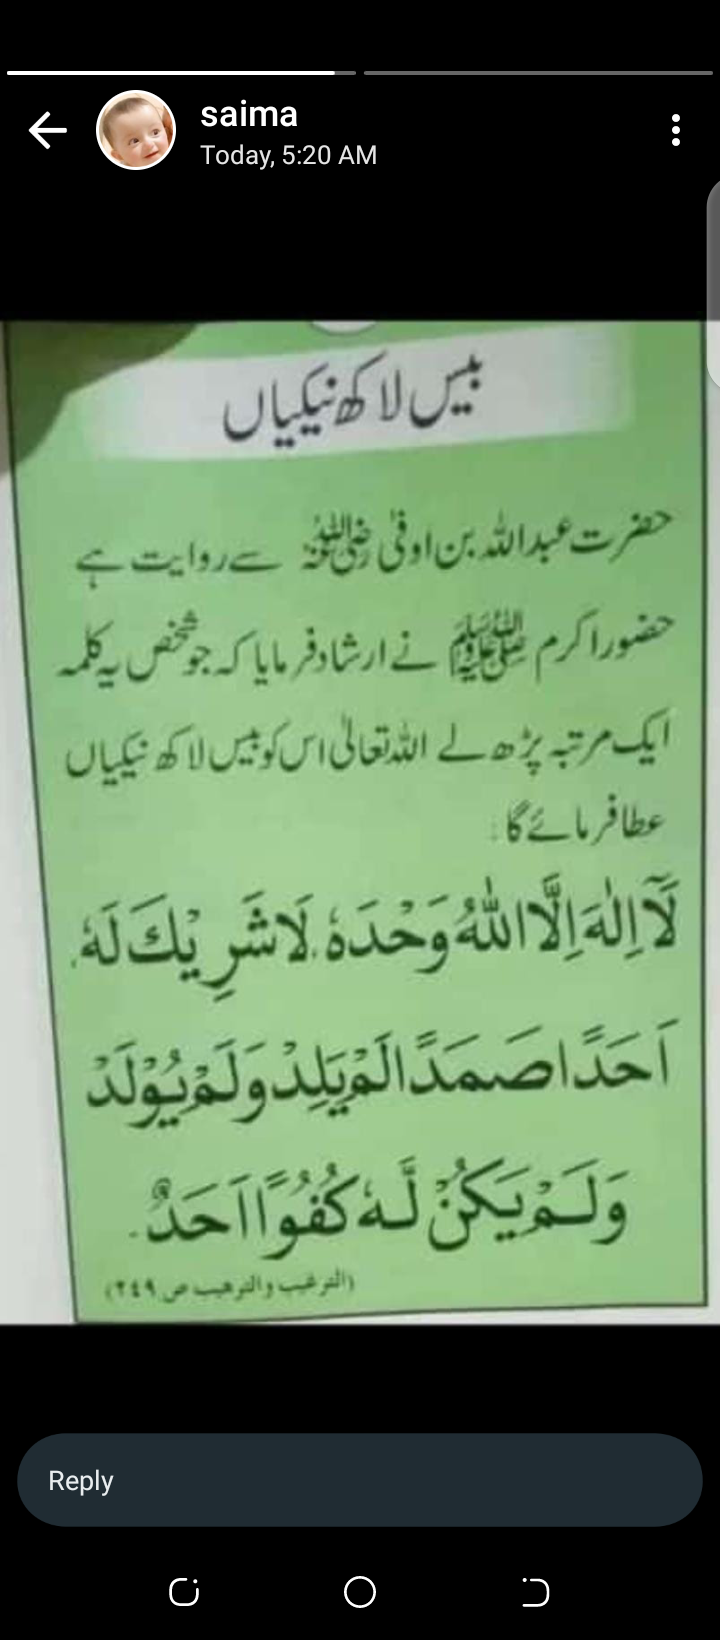 saima
Today, 5:20 AM
بیس لاکھ نیکیاں
حضرت عبداللہ بن اوفیٰ رضی اللہ عنہ سے روایت ہے
حضور اکرم ﷺ نے ارشاد فرمایا کہ جو شخص یہ کلمہ
ایک مرتبہ پڑھ لے اللہ تعالیٰ اس کو بیس لاکھ نیکیاں
عطا فرمائے گا:
لَآ اِلٰهَ اِلَّا اللّٰهُ وَحْدَهٗ لَا شَرِيْكَ لَهٗ
اَحَدًا صَمَدًا لَمْ يَلِدْ وَلَمْ يُوْلَدْ
وَلَمْ يَكُنْ لَّهٗ كُفُوًا اَحَدٌ.
(الترغیب والترھیب ص ٢٤٩)
Reply